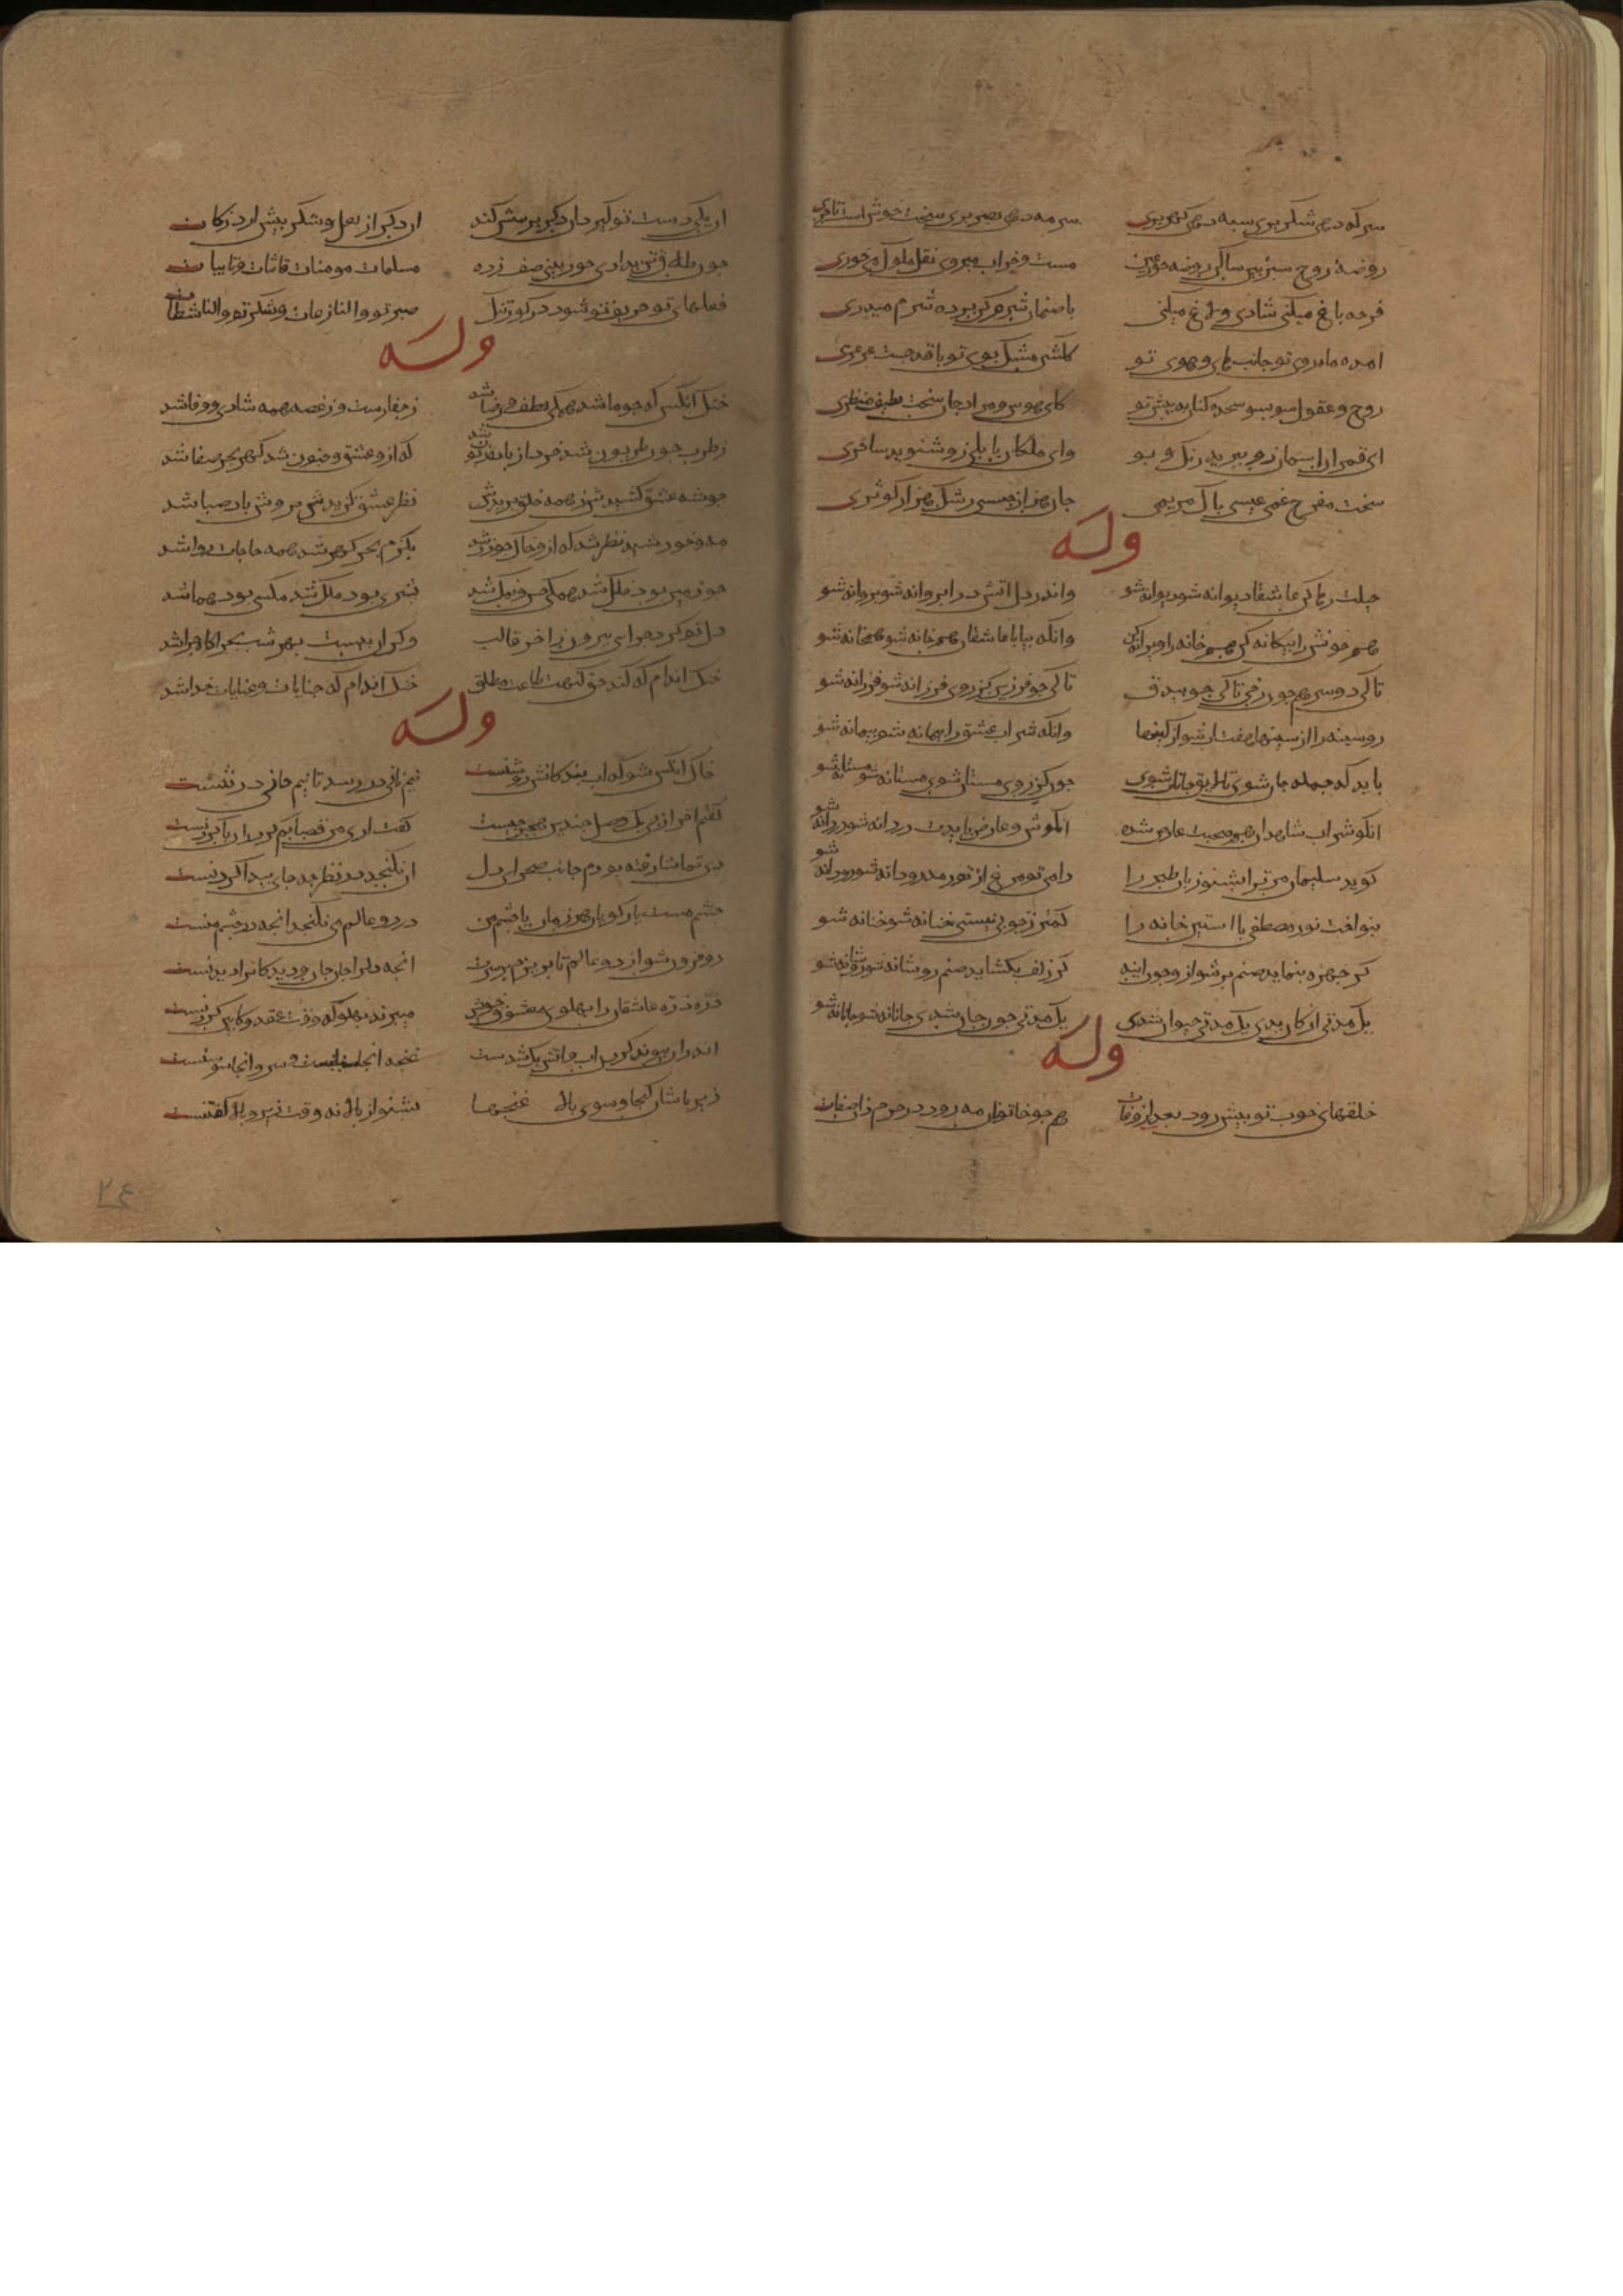 سرکه دهی شکر بری شبه دهی کهر بری سرمه دهی بصر بری سخت خوش است تاجری
روضهٔ روح سبز بین ساکن روضه حور عین مست و خراب میروی نقل ملوک میخوری
فرجه باغ میکنی شادی و لاغ میکنی با صنمان شرم کن پرده شرم میدری
امده ماه روی تو جانب های وهوی تو کلشن مشک بوی تو با قد جست عرعری
روح و عقول سو بسو سجده کنان به پیش تو کای هوس و مراد جان سخت لطیف منظری
ای قمران اسمان زو ببرید رنک و بو وای ملکان بابلی زو شنوید ساحری
سخت مفرح غمی عیسی پاک مریمی جان هزار عیسی رشک هزار کوثری
وله
حیلت رها کن عاشقا دیوانه شو دیوانه شو واندر دل اتش درا پروانه شو پروانه شو
هم خوش را بیکانه کن هم خانه را ویرانه کن وانکه بیا با عاشقان هم خانه شو هم خانه شو
تا کی دوسر هم جون رخی تا کی جو بیدق تا کی جو فرزین کژ روی فرزانه شو فرزانه شو
رو سینه را از سینها هفت اب شو از کینها وانکه شراب عشق را پیمانه شو پیمانه شو
باید که جمله جان شوی تا لایق جانان شوی جون کژ روی مستان شوی مستانه شو مستانه شو
ان کوشوار شاهدان هم صحبت عارض شده ان کوش و عارض بایدت دردانه شو دردانه شو
کوید سلیمان مر ترا بشنو زبان طیر را دامی تو مرغ از تو رمد رو دانه شو رو دانه شو
بنواخت نور مصطفی با استن حنانه را کمتر ز جوبی نیستی حنانه شو حنانه شو
کر جهره بنماید صنم پر شو ازو جون اینه کر زلف بکشاید صنم رو شانه شو رو شانه شو
یک مدتی ارکان بدی یک مدتی حیوان شدی یک مدتی جون جان شدی جانانه شو جانانه شو
وله
خلقهای خوب تو پیش رود بعد از وفات هم جو خاتونان مه رو در حرم زان صفات
ان یکی دست تو کیرد ان دکر پرسش کند ان دکر از لعل و شکر پیش ارد زکات
جون طلاق تن بدادی حور بینی صف زده مسلمات مومنات قانتات تایبات
فعلهای تو حریف تو شود در کور تنک صبر تو والنازعات و شکر تو والناشطات
وله
خنک انکس که جو ما شد همکی لطف و رضا شد ز جفا رست و ز غصه همه شادی و وفا شد
ز طرب جون طربون شد خرد از باده زبون شد که ازو عشق وضنون شد کهر بحر صفا شد
جو شه عشق کشیدش ز همه خلق بریدش نظر عشق کزیدش بروش باد صبا شد
مه و خورشید نظر شد که ازو خاک جو زر شد بکرم بحر کهر شد همه حاجات روا شد
جو زمین بود فلک شد همکی حسن و نمک شد بشری بود ملک شد مکسی بود هما شد
دل تو کرد جرایی برون زاخر قالب وکر ان بست بهر شب بجراکاه جرا شد
خنک ان دم که کند حق کنهت طاعت مطلق خنک ان دم که جنایات و عنایات خدا شد
وله
خاک انکس شو که اب بندکانش روشنست نیم نانی در رسد تا نیم جانی در تنست
کفتم اخر از پی یک وصل جندین هجر جیست کفت اری من قصابم کردران با کردنست
دی تماشا رفته بودم جانب صحرای دل ان نکنجد در نظر جه جای پیدا کردنست
جشم مست یار کویان هر زمان با جشم من در دو عالم می نکنجد انجه در جشم منست
رو فزون شو از دو عالم تا بریزم بر سرت انجه دلرا جان جان و دیدکانرا دیدنست
ذره ذره عاشقان را پهلوی معشوق خویش میزند پهلو که وقت عقد و کابین کردنست
اندران پیوند کردن اب واتش یک شدست غنجه انجا سنبلست و سرو انجا سوسنست
زیر پا شان کنجها و سوی بالا غنجها بشنو از بالا نه وقت زیر و بالا کفتنست